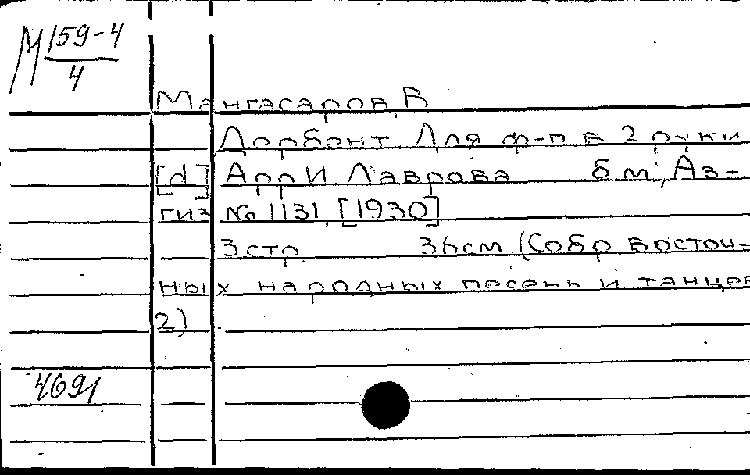 М 159-4
4
Мангасаров, В
Дербент Для ф-п в 2 руки
[d] Арр И Лаврова б м, Аз=
гиз № 1131, [1930]
3 стр 36 см (Собр восточ=
ных народных песень и танцев
2)
4691